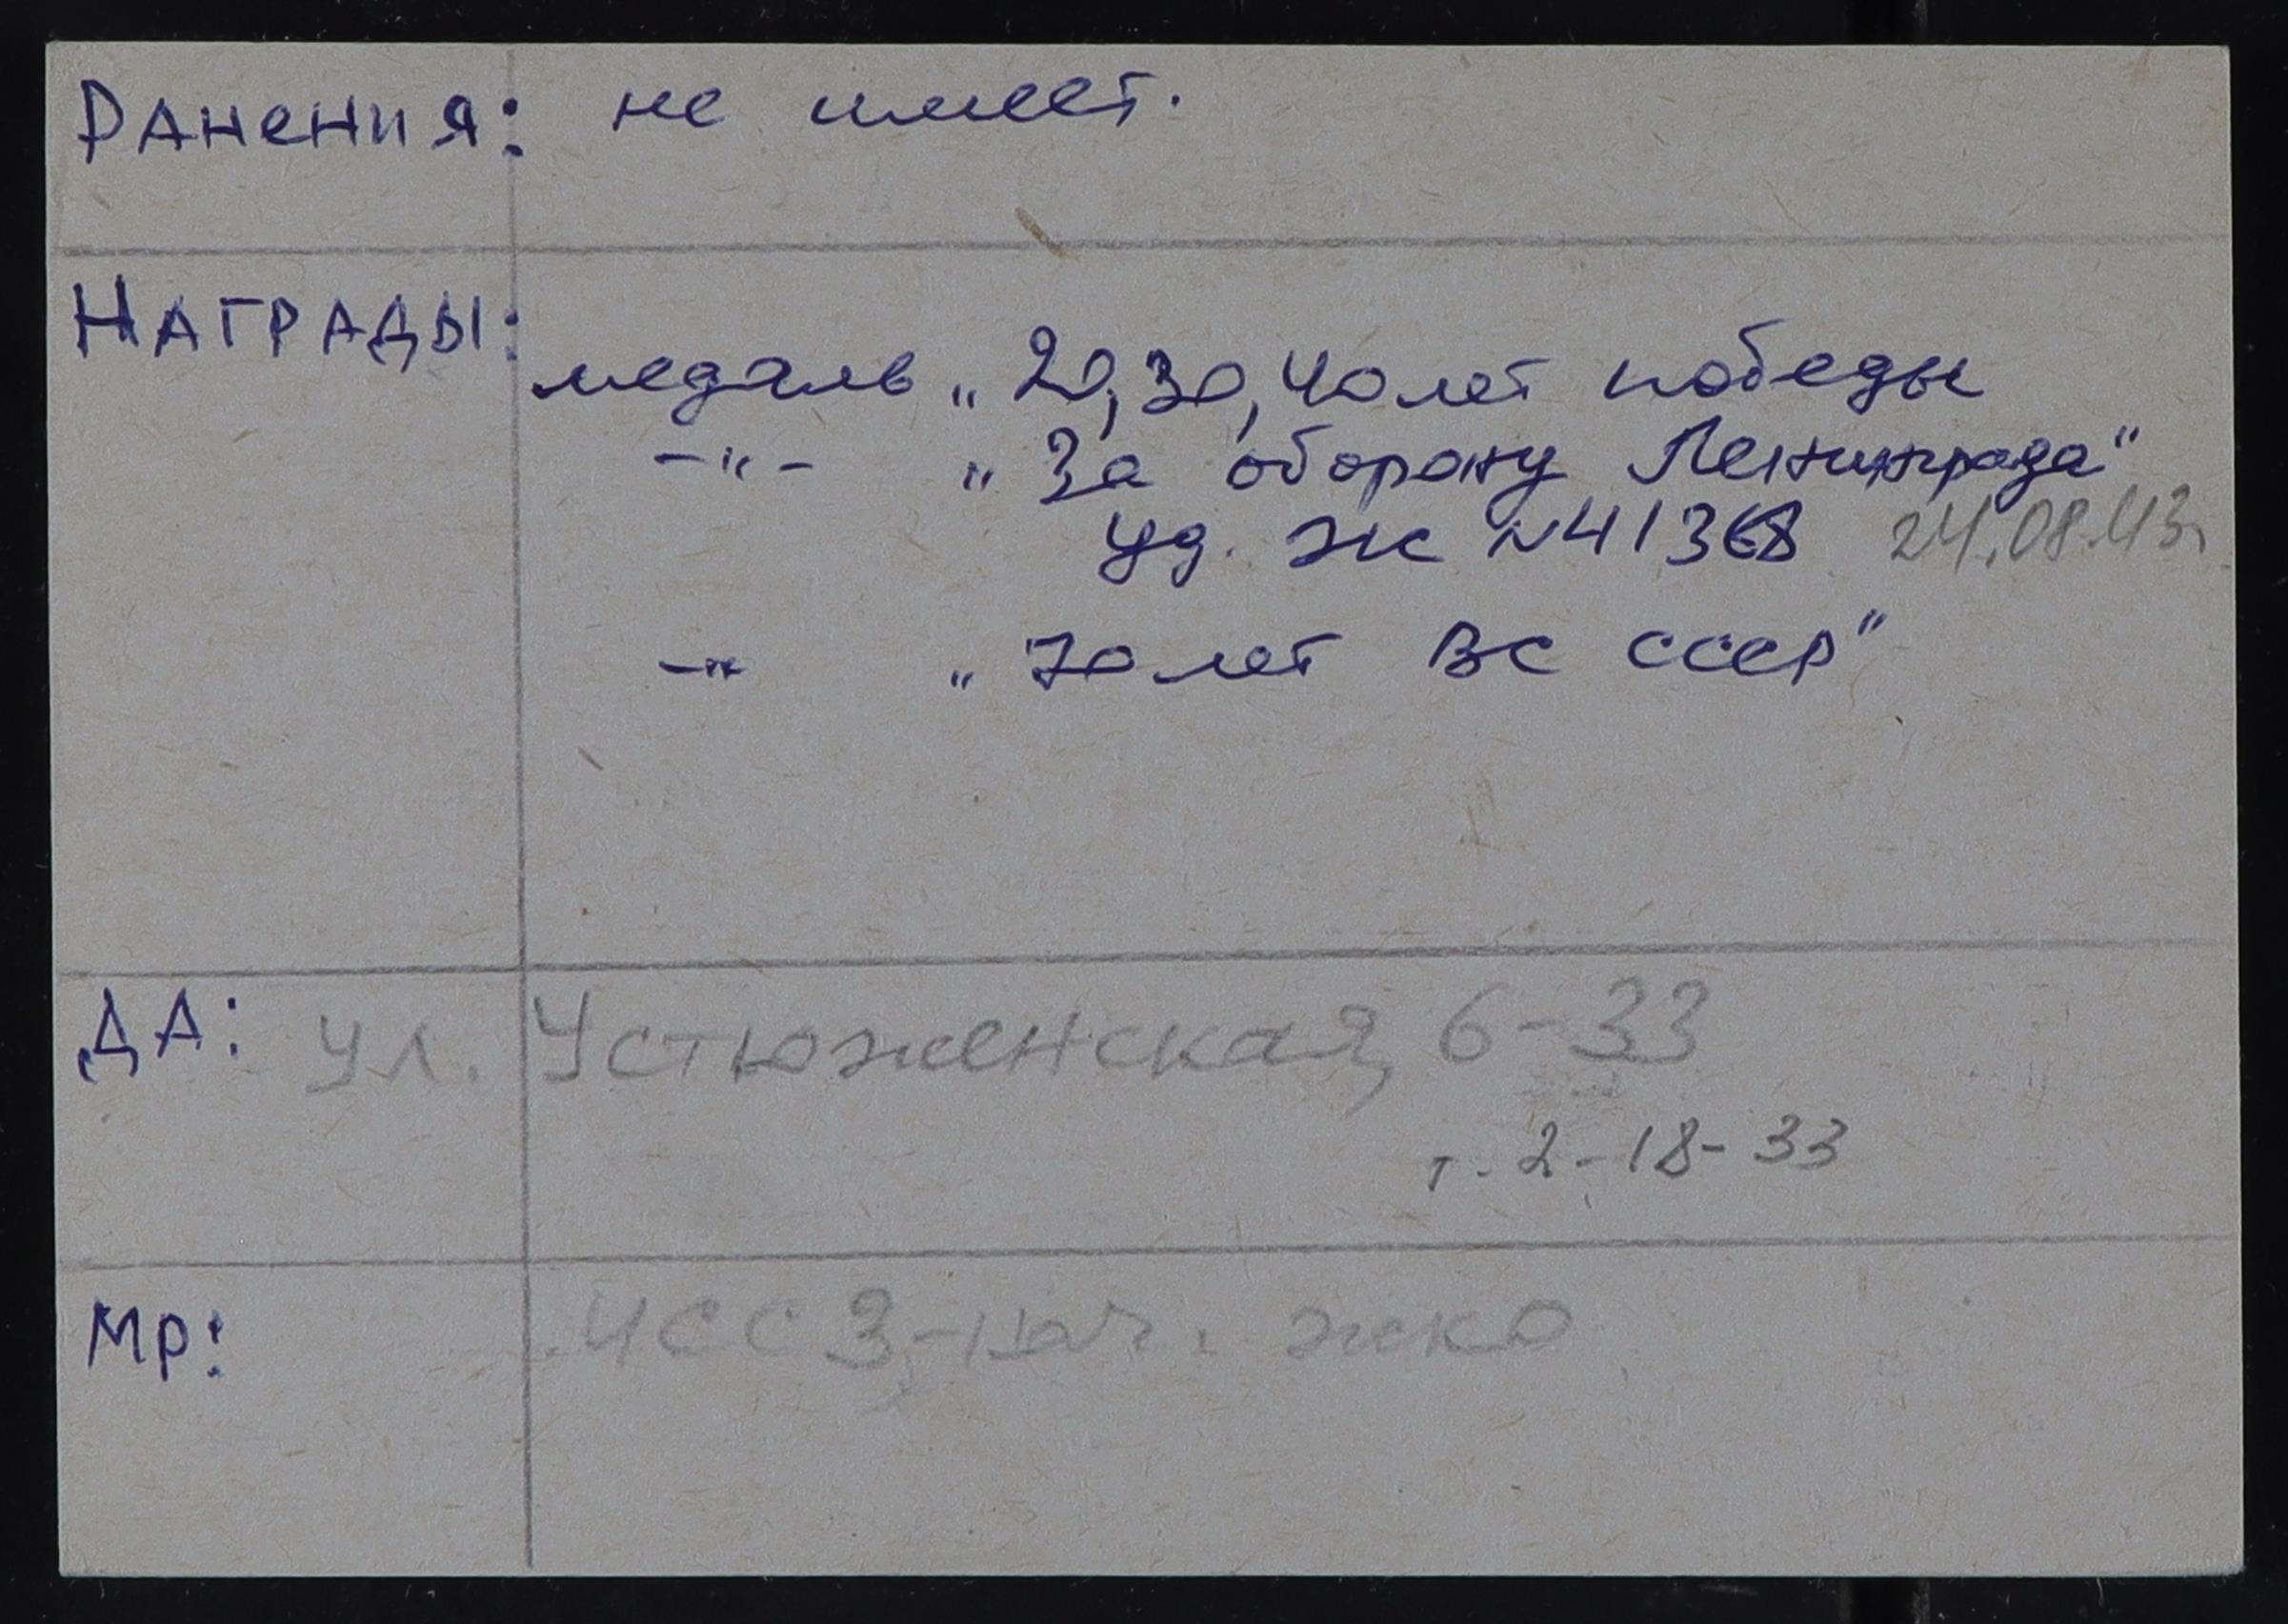 Ранения: не имеет.
Награды:
медаль „20, 30, 40 лет победы
-"- „За оборону Ленинграда"
уд. ЖК №41368 24.08.43г
-"- „70 лет ВС СССР"
ДА: ул. Устюженская, 6-33
т. 2-18-33
МР: ЧССЗ- жко